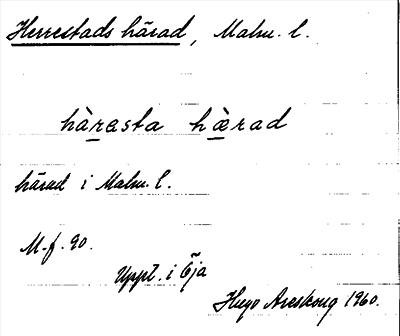 Herrestads härad, Malm. l.
hàrasta hæ̀rad
härad i Malm. l.
M.f. 90.
Uppt. i Öja
Hugo Areskoug 1960.